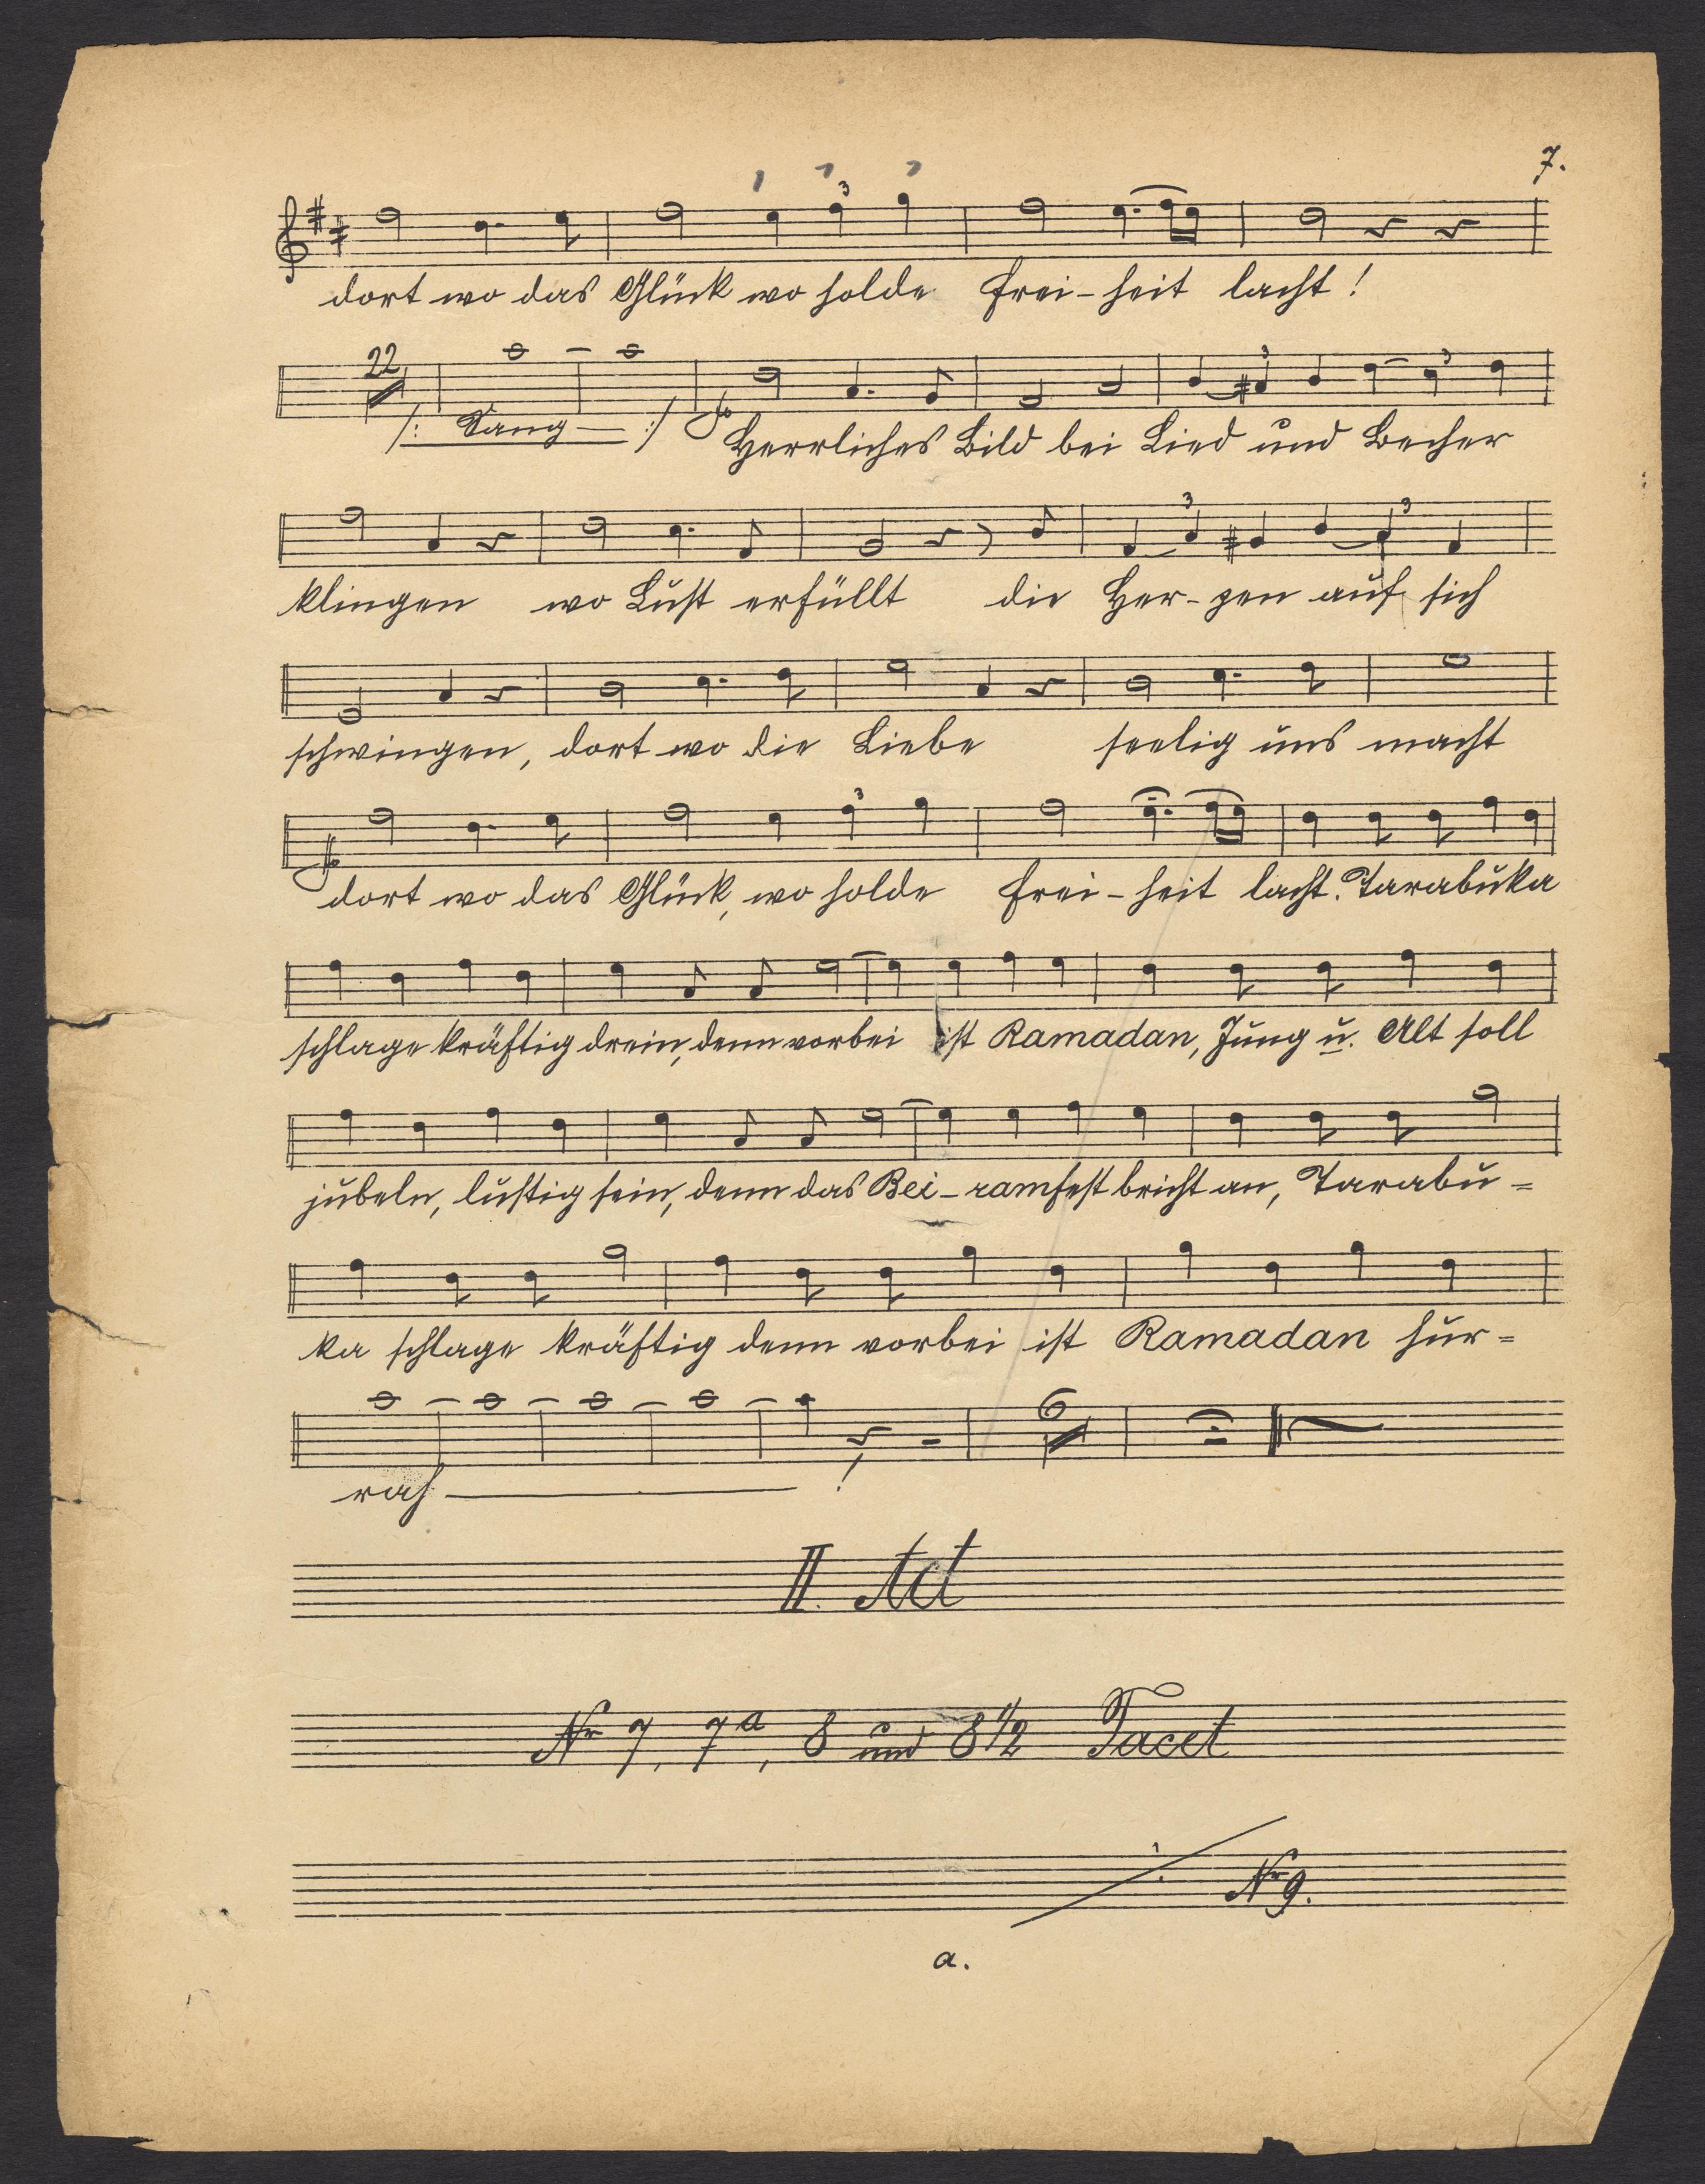 7.
dort wo das Glück wo holde Frei-heit lacht!
22
/: Sang — :/ Herrliches Bild bei Lied und Becher
klingen wo Lust erfüllt die Her-zen auf sich
schwingen, dort wo die Liebe seelig uns macht
dort wo das Glück, wo holde Frei-heit lacht. Tarabuka
schlage kräftig drein, denn vorbei ist Ramadan, Jung u. Alt soll
jubeln, lustig sein, denn das Bei-ramfest bricht an, Tarabu=
ka schlage kräftig denn vorbei ist Ramadan hur=
6
rah — !
II. Act
Nr 7, 7a, 8 und 8 1/2 Tacet
Nr 9.
a.